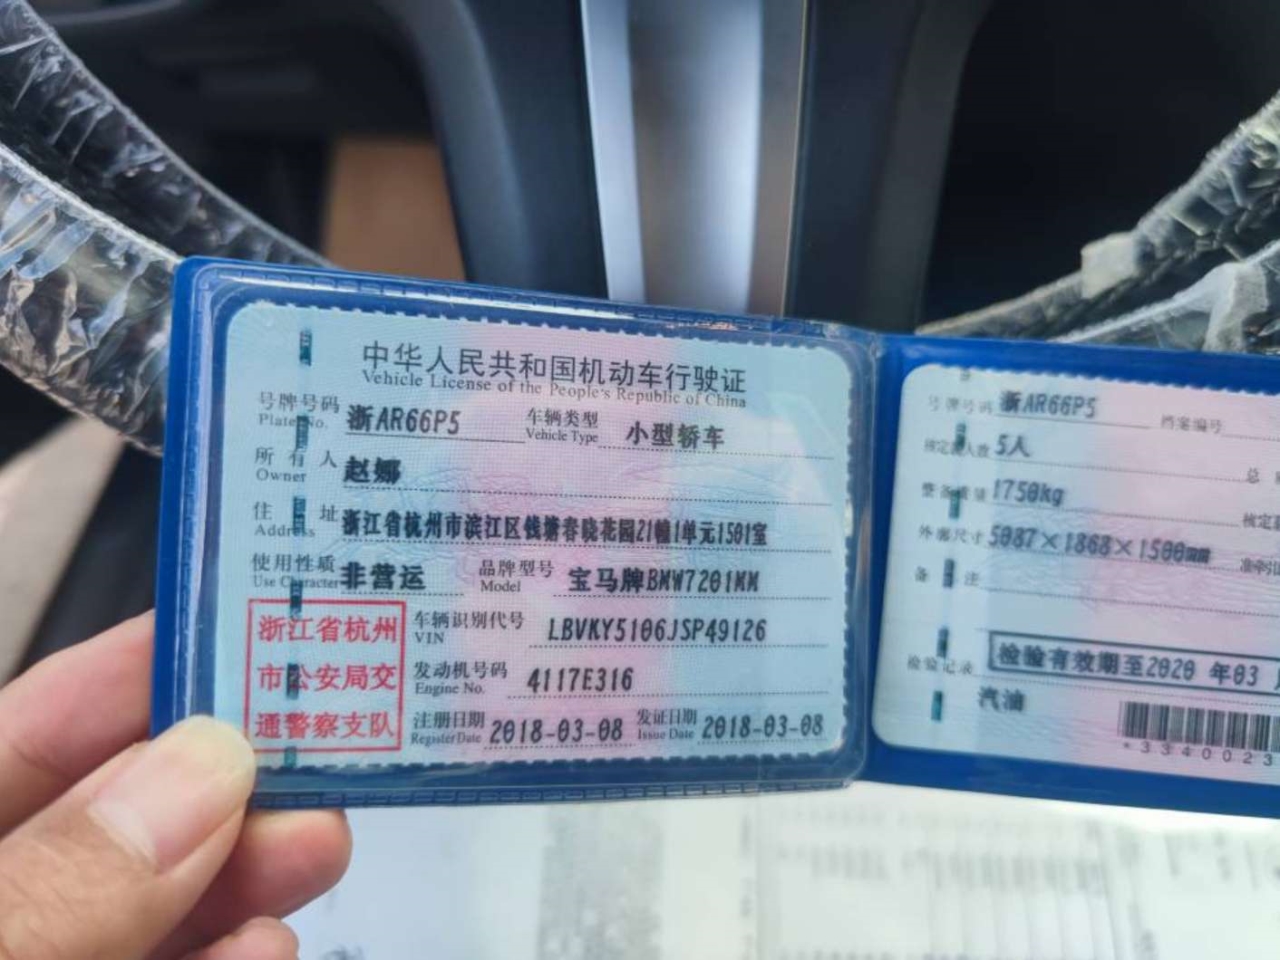 中华人民共和国机动车行驶证
Vehicle License of the People's Republic of China
号牌号码 浙AR66P5 车辆类型 小型轿车
Plate No. Vehicle Type
所有人 赵娜
Owner
住址 浙江省杭州市滨江区钱塘春晓花园21幢1单元1501室
Address
使用性质 非营运 品牌型号 宝马牌BMW7201MM
Use Character Model
浙江省杭州
市公安局交
通警察支队
车辆识别代号 LBVKY5106JSP49126
VIN
发动机号码 4117E316
Engine No.
注册日期 2018-03-08 发证日期 2018-03-08
Register Date Issue Date
号牌号码 浙AR66P5 档案编号
核定载人数 5人 总
整备质量 1750kg 核定
外廓尺寸 5087×1868×1500mm 准牵引
备注
检验记录 检验有效期至2020 年03
汽油
*3340023